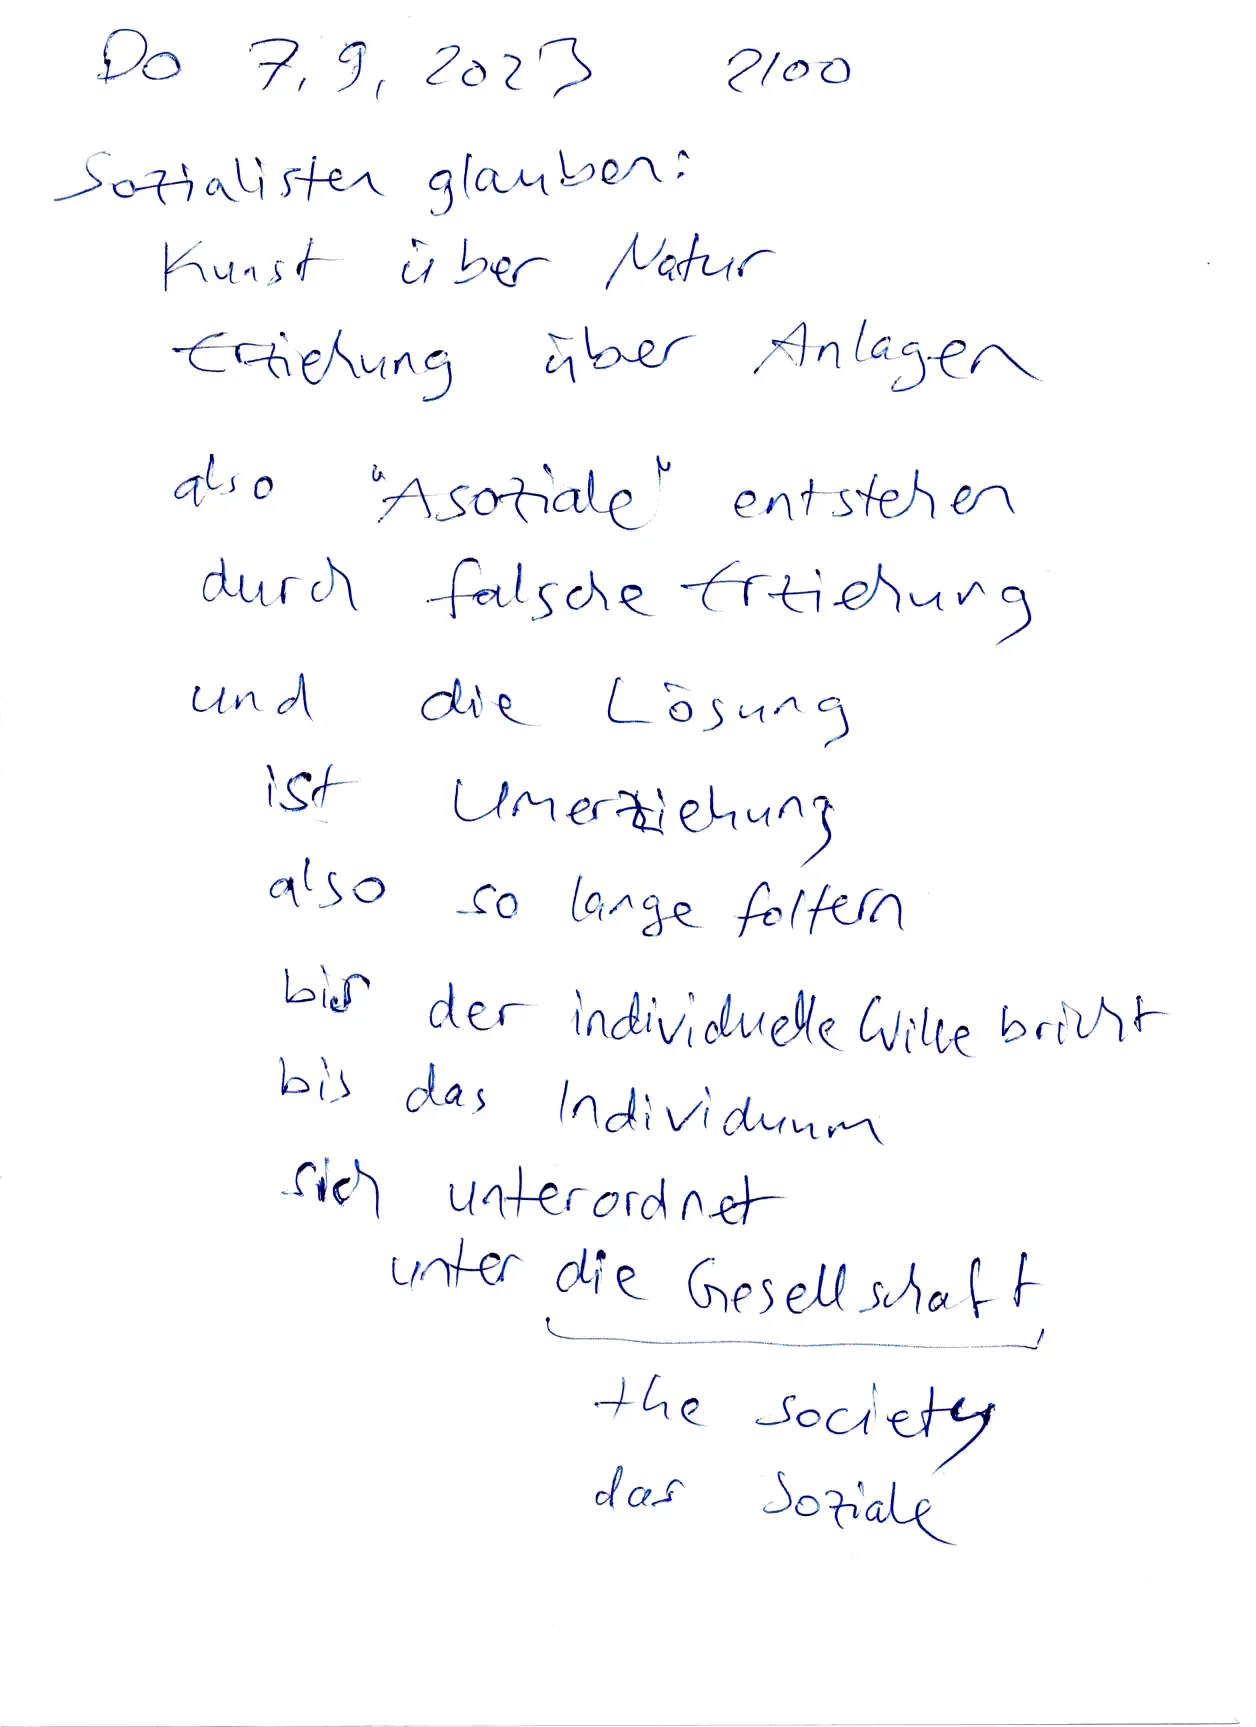 Do 7.9.2023 2100
Sozialisten glauben:
Kunst über Natur
Erziehung über Anlagen
also "Asoziale" entstehen
durch falsche Erziehung
und die Lösung
ist Umerziehung
also so lange foltern
bis der individuelle Wille bricht
bis das Individuum
sich unterordnet
unter die Gesellschaft
the society
das Soziale